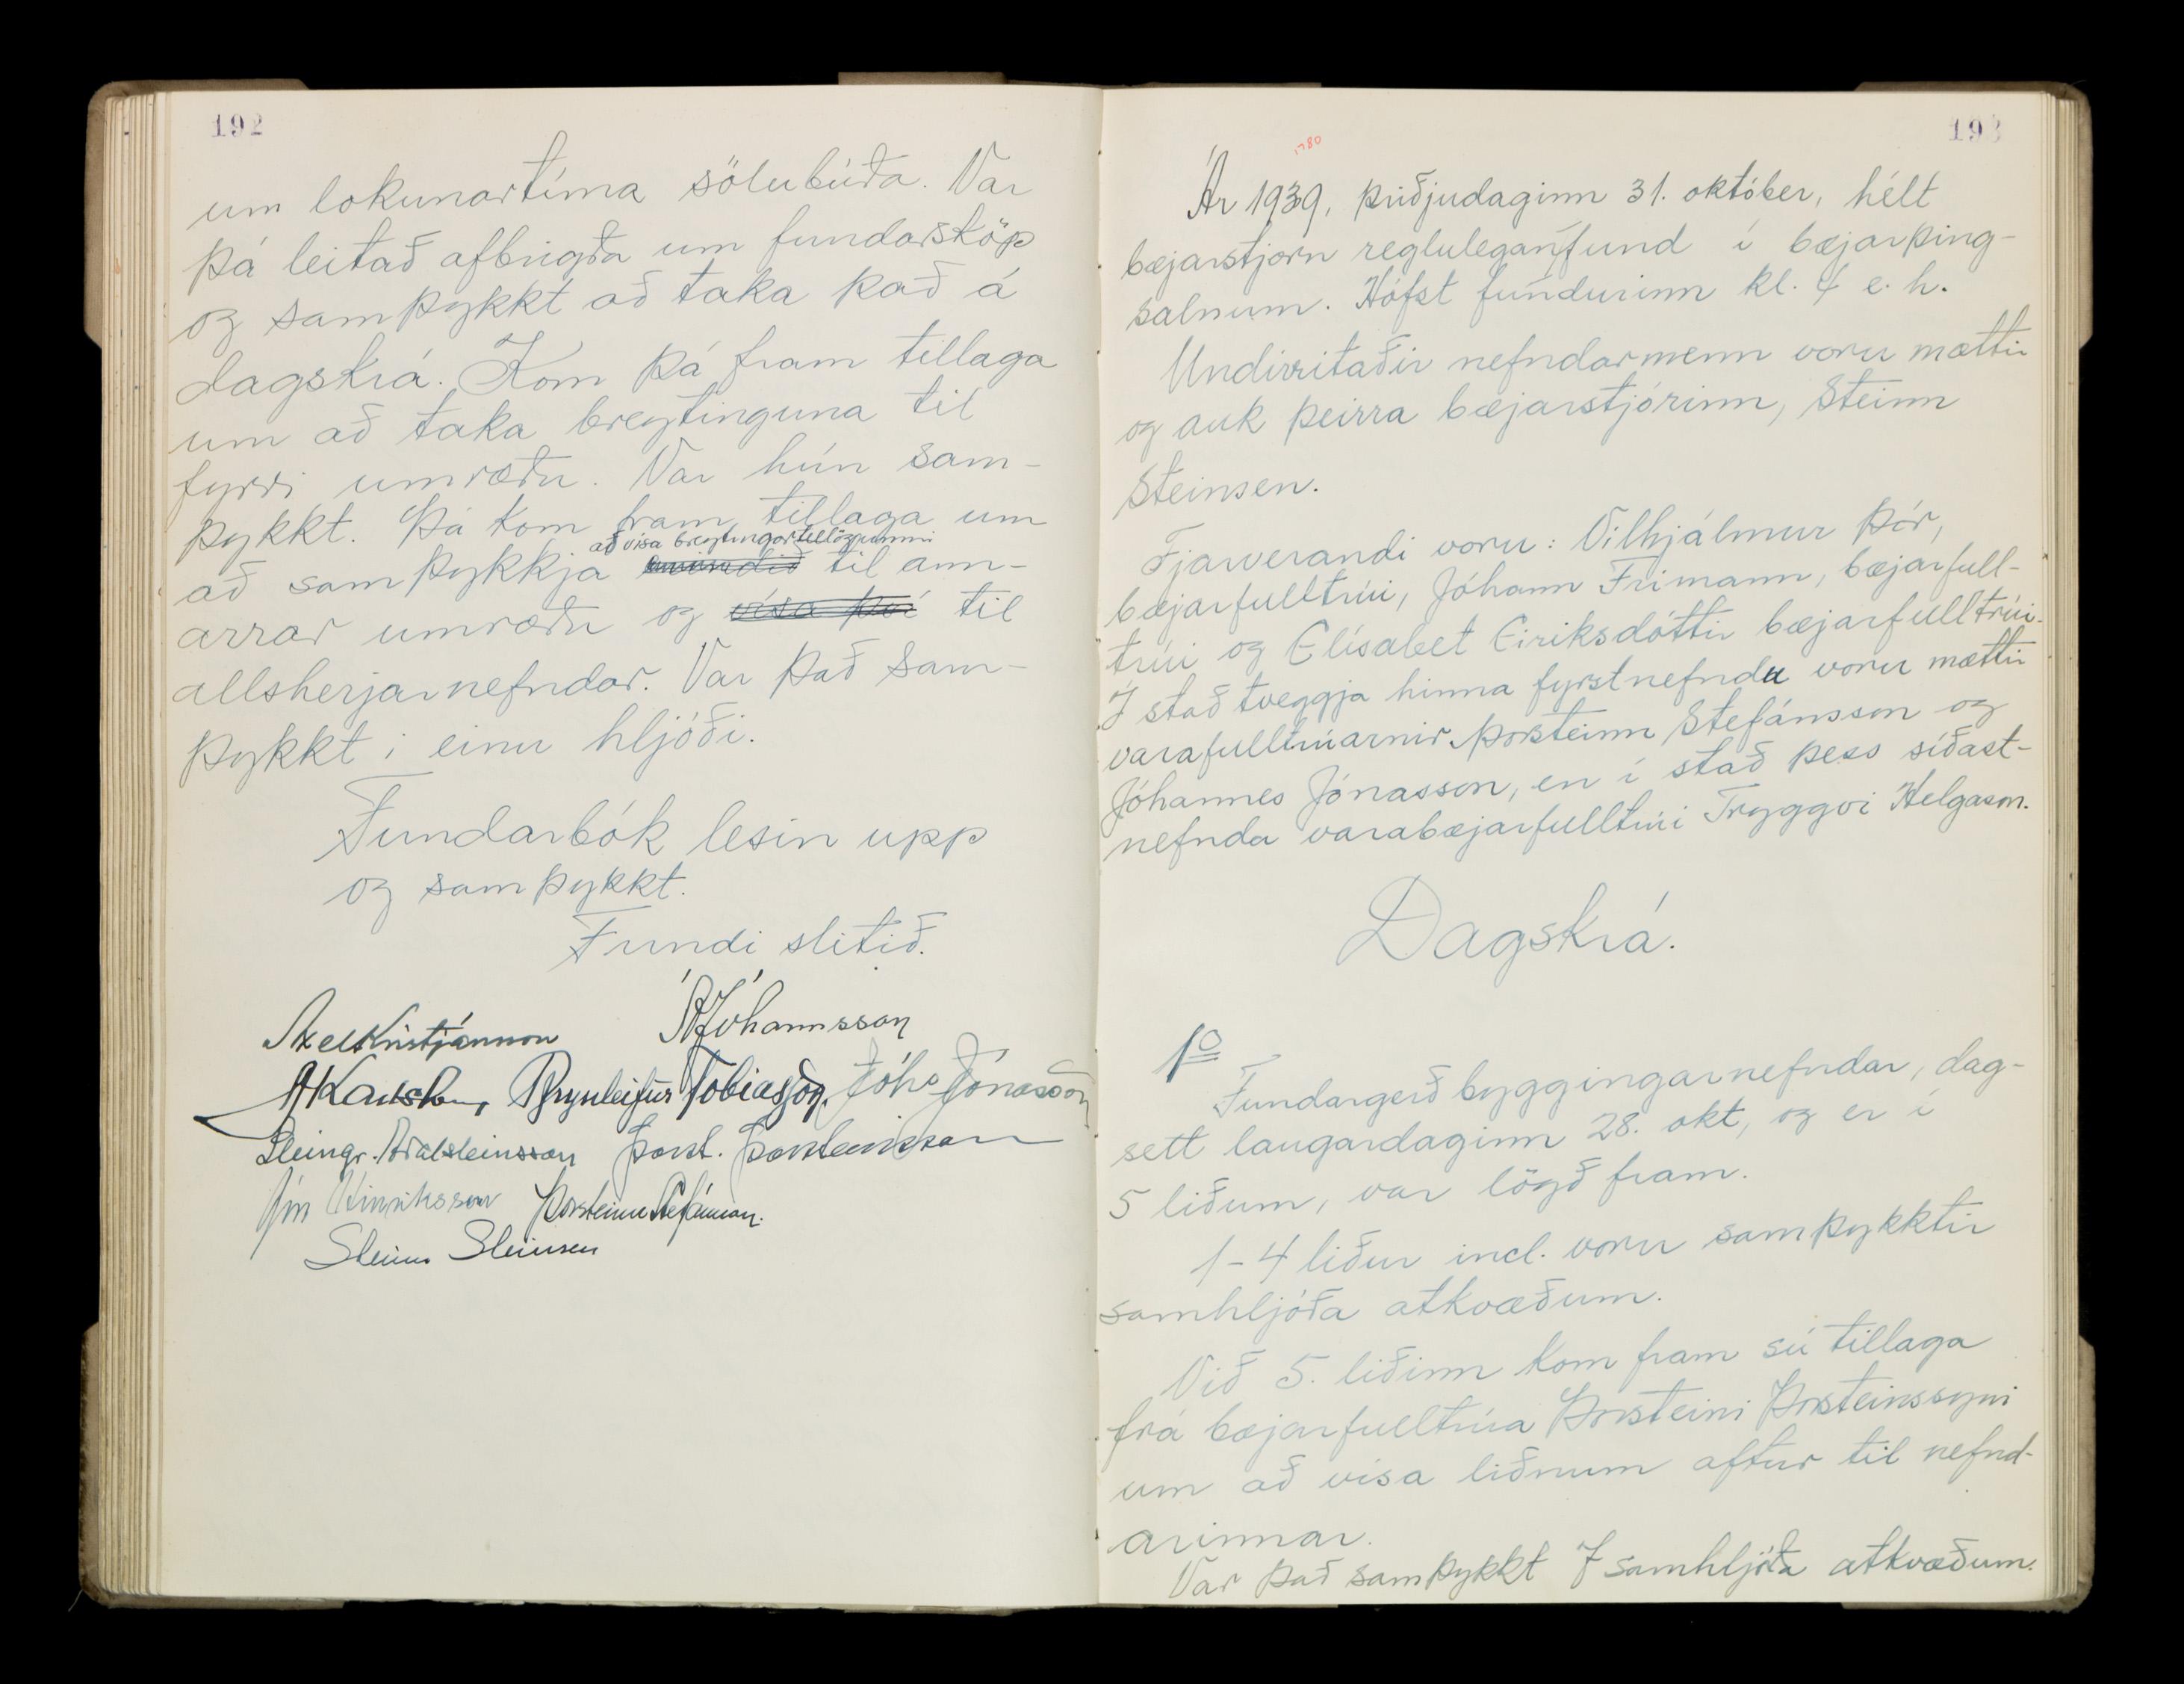 192
um lokunartíma sölubúða. Var
þá leitað afbrigða um fundarsköp
og samþykkt að taka það á
dagskrá. Kom þá fram tillaga
um að taka breytinguna til
fyrri umræðu. Var hún sam-
þykkt. Þá kom fram tillaga um
að vísa breytingartillögunni
að samþykkja erindið til ann-
arrar umræðu og vísa því til
allsherjarnefndar. Var það sam-
þykkt í einu hljóði.
Fundarbók lesin upp
og samþykkt.
Fundi slitið.
Axel Kristjánsson Á Jóhannsson
Brynleifur Tobiasson. Jóhs Jónasson
Steingr. Aðalsteinsson Þorst. Þorsteinsson
Jón Hinriksson Þorsteinn Stefánsson.
Steinn Steinsen
193
1780
Ár 1939, þriðjudaginn 31. október, hélt
bæjarstjórn reglulegan fund í bæjarþing-
salnum. Hófst fundurinn kl. 4 e. h.
Undirritaðir nefndarmenn voru mættir
og auk þeirra bæjarstjórinn, Steinn
Steinsen.
Fjarverandi voru: Vilhjálmur Þór,
bæjarfulltrúi, Jóhann Frímann, bæjarfull-
trúi og Elísabet Eiriksdóttir bæjarfulltrúi.
Í stað tveggja hinna fyrstnefndu voru mættir
varafulltrúarnir Þorsteinn Stefánsson og
Jóhannes Jónasson, en í stað þess síðast-
nefnda varabæjarfulltrúi Tryggvi Helgason.
Dagskrá.
1º
Fundargerð byggingarnefndar, dag-
sett laugardaginn 28. okt, og er í
5 liðum, var lögð fram.
1-4 liður incl. voru samþykktir
samhljóða atkvæðum.
Við 5. liðinn kom fram sú tillaga
frá bæjarfulltrúa Þorsteini Þorsteinssyni
um að vísa liðnum aftur til nefnd-
arinnar.
Var það samþykkt 7 samhljóða atkvæðum.